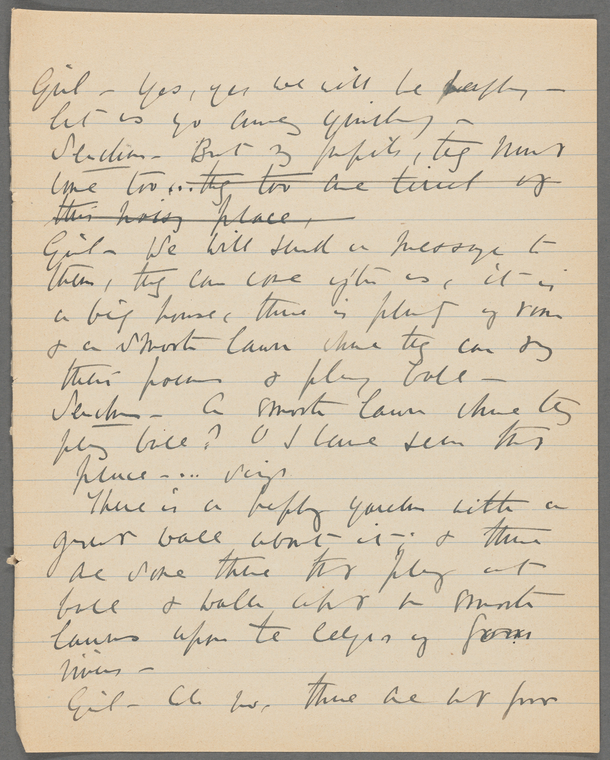 Girl – Yes, yes we will be happy –
let us go away quickly –
Seanchan – But my pupils, they must
come too... they too are tired of
this noisy place,
Girl – We will send a message to
them, they can come after us, it is
a big house, there is plenty of room
& a smooth lawn where they can say
their poems & play ball –
Seanchan – A smooth lawn where they
play ball? O I have seen that
place – ... sings
There is a happy garden with a
great wall about it: & there
are some there that play at
ball & walk upon smooth
lawns upon the edges of
rivers –
Girl – Ah no, there are not four